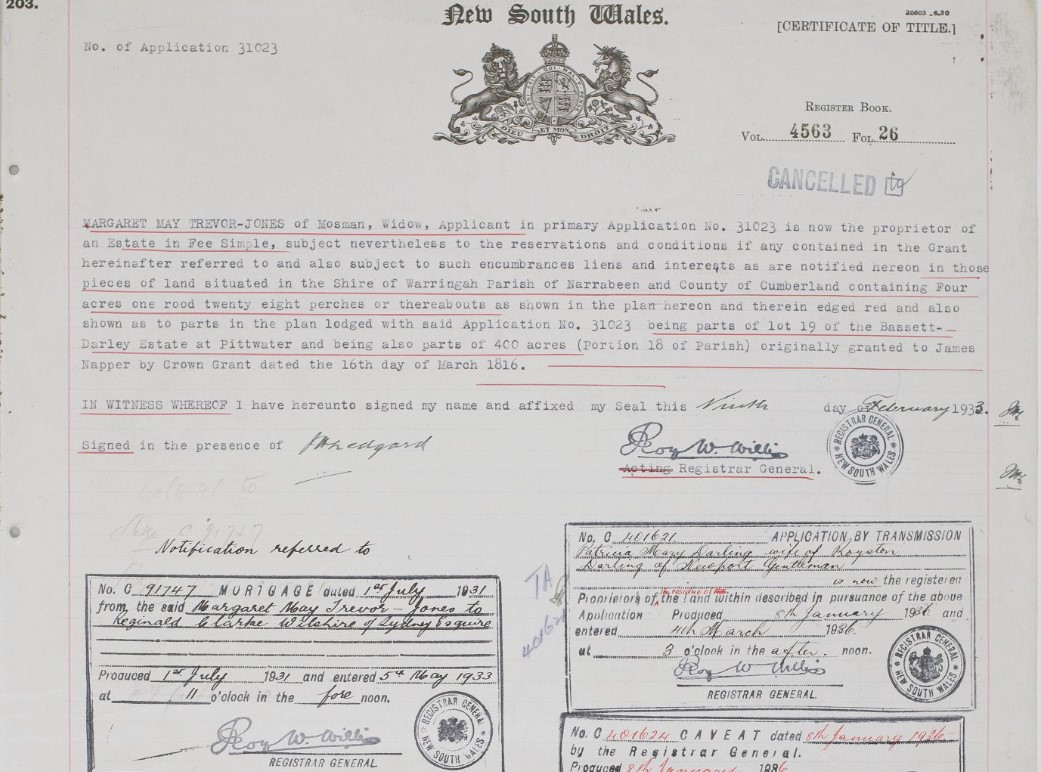 203.
New South Wales.
20803 6.30
[CERTIFICATE OF TITLE.]
No. of Application 31023
DIEU ET MON DROIT
REGISTER BOOK.
VOL. 4563 FOL. 26
CANCELLED
MARGARET MAY TREVOR-JONES of Mosman, Widow, Applicant in primary Application No. 31023 is now the proprietor of
an Estate in Fee Simple, subject nevertheless to the reservations and conditions if any contained in the Grant
hereinafter referred to and also subject to such encumbrances liens and interests as are notified hereon in those
pieces of land situated in the Shire of Warringah Parish of Narrabeen and County of Cumberland containing Four
acres one rood twenty eight perches or thereabouts as shown in the plan hereon and therein edged red and also
shown as to parts in the plan lodged with said Application No. 31023 being parts of lot 19 of the Bassett-
Darley Estate at Pittwater and being also parts of 400 acres (Portion 18 of Parish) originally granted to James
Napper by Crown Grant dated the 16th day of March 1816.
IN WITNESS WHEREOF I have hereunto signed my name and affixed my Seal this Ninth day of February 1933.
Signed in the presence of
Roy W. Willis
Acting Registrar General.
REGISTRAR GENERAL NEW SOUTH WALES
Notification referred to
No. C 91747 MORTGAGE dated 1st July 1931
from the said Margaret May Trevor-Jones to
Reginald Clarke Wilshire of Sydney Esquire
Produced 1st July 1931 and entered 5th May 1933
at 11 o'clock in the fore noon.
Roy W. Willis
REGISTRAR GENERAL.
REGISTRAR GENERAL NEW SOUTH WALES
TA
401621
No. C 401621 APPLICATION BY TRANSMISSION
Patricia Mary Darling wife of Royston
Darling of Newport Gentleman
is now the registered
the residue of
Proprietors of the land within described in pursuance of the above
Application Produced 8th January 1936 and
entered 4th March 1936
at 3 o'clock in the after noon.
Roy W Willis
REGISTRAR GENERAL.
REGISTRAR GENERAL NEW SOUTH WALES
No. C 401624 CAVEAT dated 8th January 1936
by the Registrar General.
Produced 8th January 1936